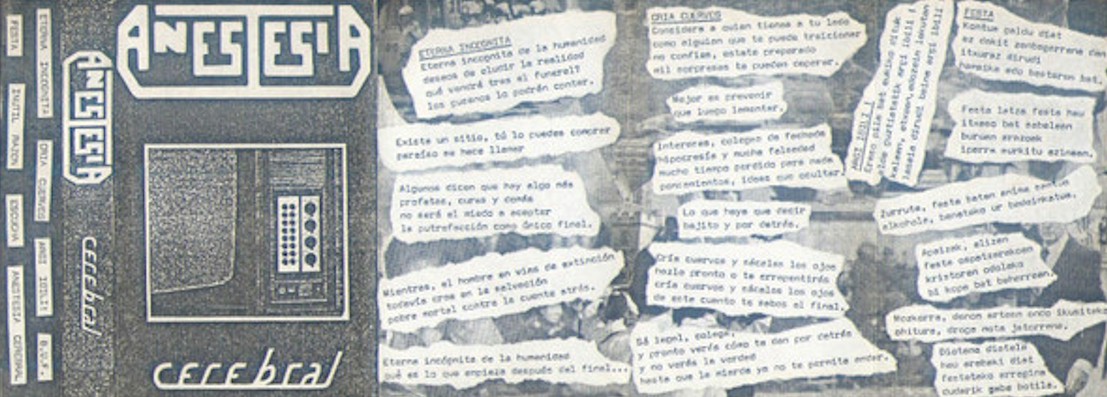 ANESTESIA
cerebral
ANESTESIA
cerebral
FESTA
INUTIL RAZON
ESCUCHA
ANESTESIA CEREBRAL
ETERNA INCOGNITA
CRIA CUERVOS
ARGI IBILI!
B.V.F.
ETERNA INCOGNITA
Eterna incognita de la humanidad
deseos de eludir la realidad
qué vendrá tras el funeral?
los gusanos lo podrán contar.
Existe un sitio, tú lo puedes comprar
paraíso se hace llamar
Algunos dicen que hay algo más
profetas, curas y demás
no será el miedo a aceptar
la putrefacción como único final.
Mientras, el hombre en vías de extinción
todavía cree en la salvación
pobre mortal contra la cuenta atrás.
Eterna incógnita de la humanidad
qué es lo que empieza después del final...
CRIA CUERVOS
Considera a quien tienes a tu lado
como alguien que te puede traicionar
no confíes, estate preparado
mil sorpresas te pueden esperar.
Mejor es prevenir
que luego lamentar.
Intereses, colegas de fachada
hipocresía y mucha falsedad
mucho tiempo perdido para nada
pensamientos, ideas que ocultar.
Lo que haya que decir
bajito y por detrás.
Cría cuervos y sácales los ojos
hazlo pronto o te arrepentirás
cría cuervos y sácales los ojos
de este cuento te sabes el final.
Sé legal, colega,
y pronto verás cómo te dan por detrás
y no verás la verdad
hasta que la mierda ya no te permita andar.
ARGI IBILI !
pila bat
alde guztietatik argi ibili !
kalean, etxean, edozein
baina argi ibili
FESTA
Kontua galdu diat
ez dakit zenbatgarrena dan
itxuraz dirudi
hamaika edo bosteren bat.
Festa latza festa hau
itxaso bat sabelean
buruan arazoak
iperra aurkitu ezinean.
Zurruta, festa baten anima
alkohola, benetako ur bedeinkatua.
Apaizak, elizan
festa ospatzerakoan
kristoren odolaka
bi kopa bat beharrean.
Mozkorra, denon artean ondo ikusitako
ohitura, droga mota jatorrena.
Distena distela
hau erabaki diat
festetako erregina
zuderik gabe botila.